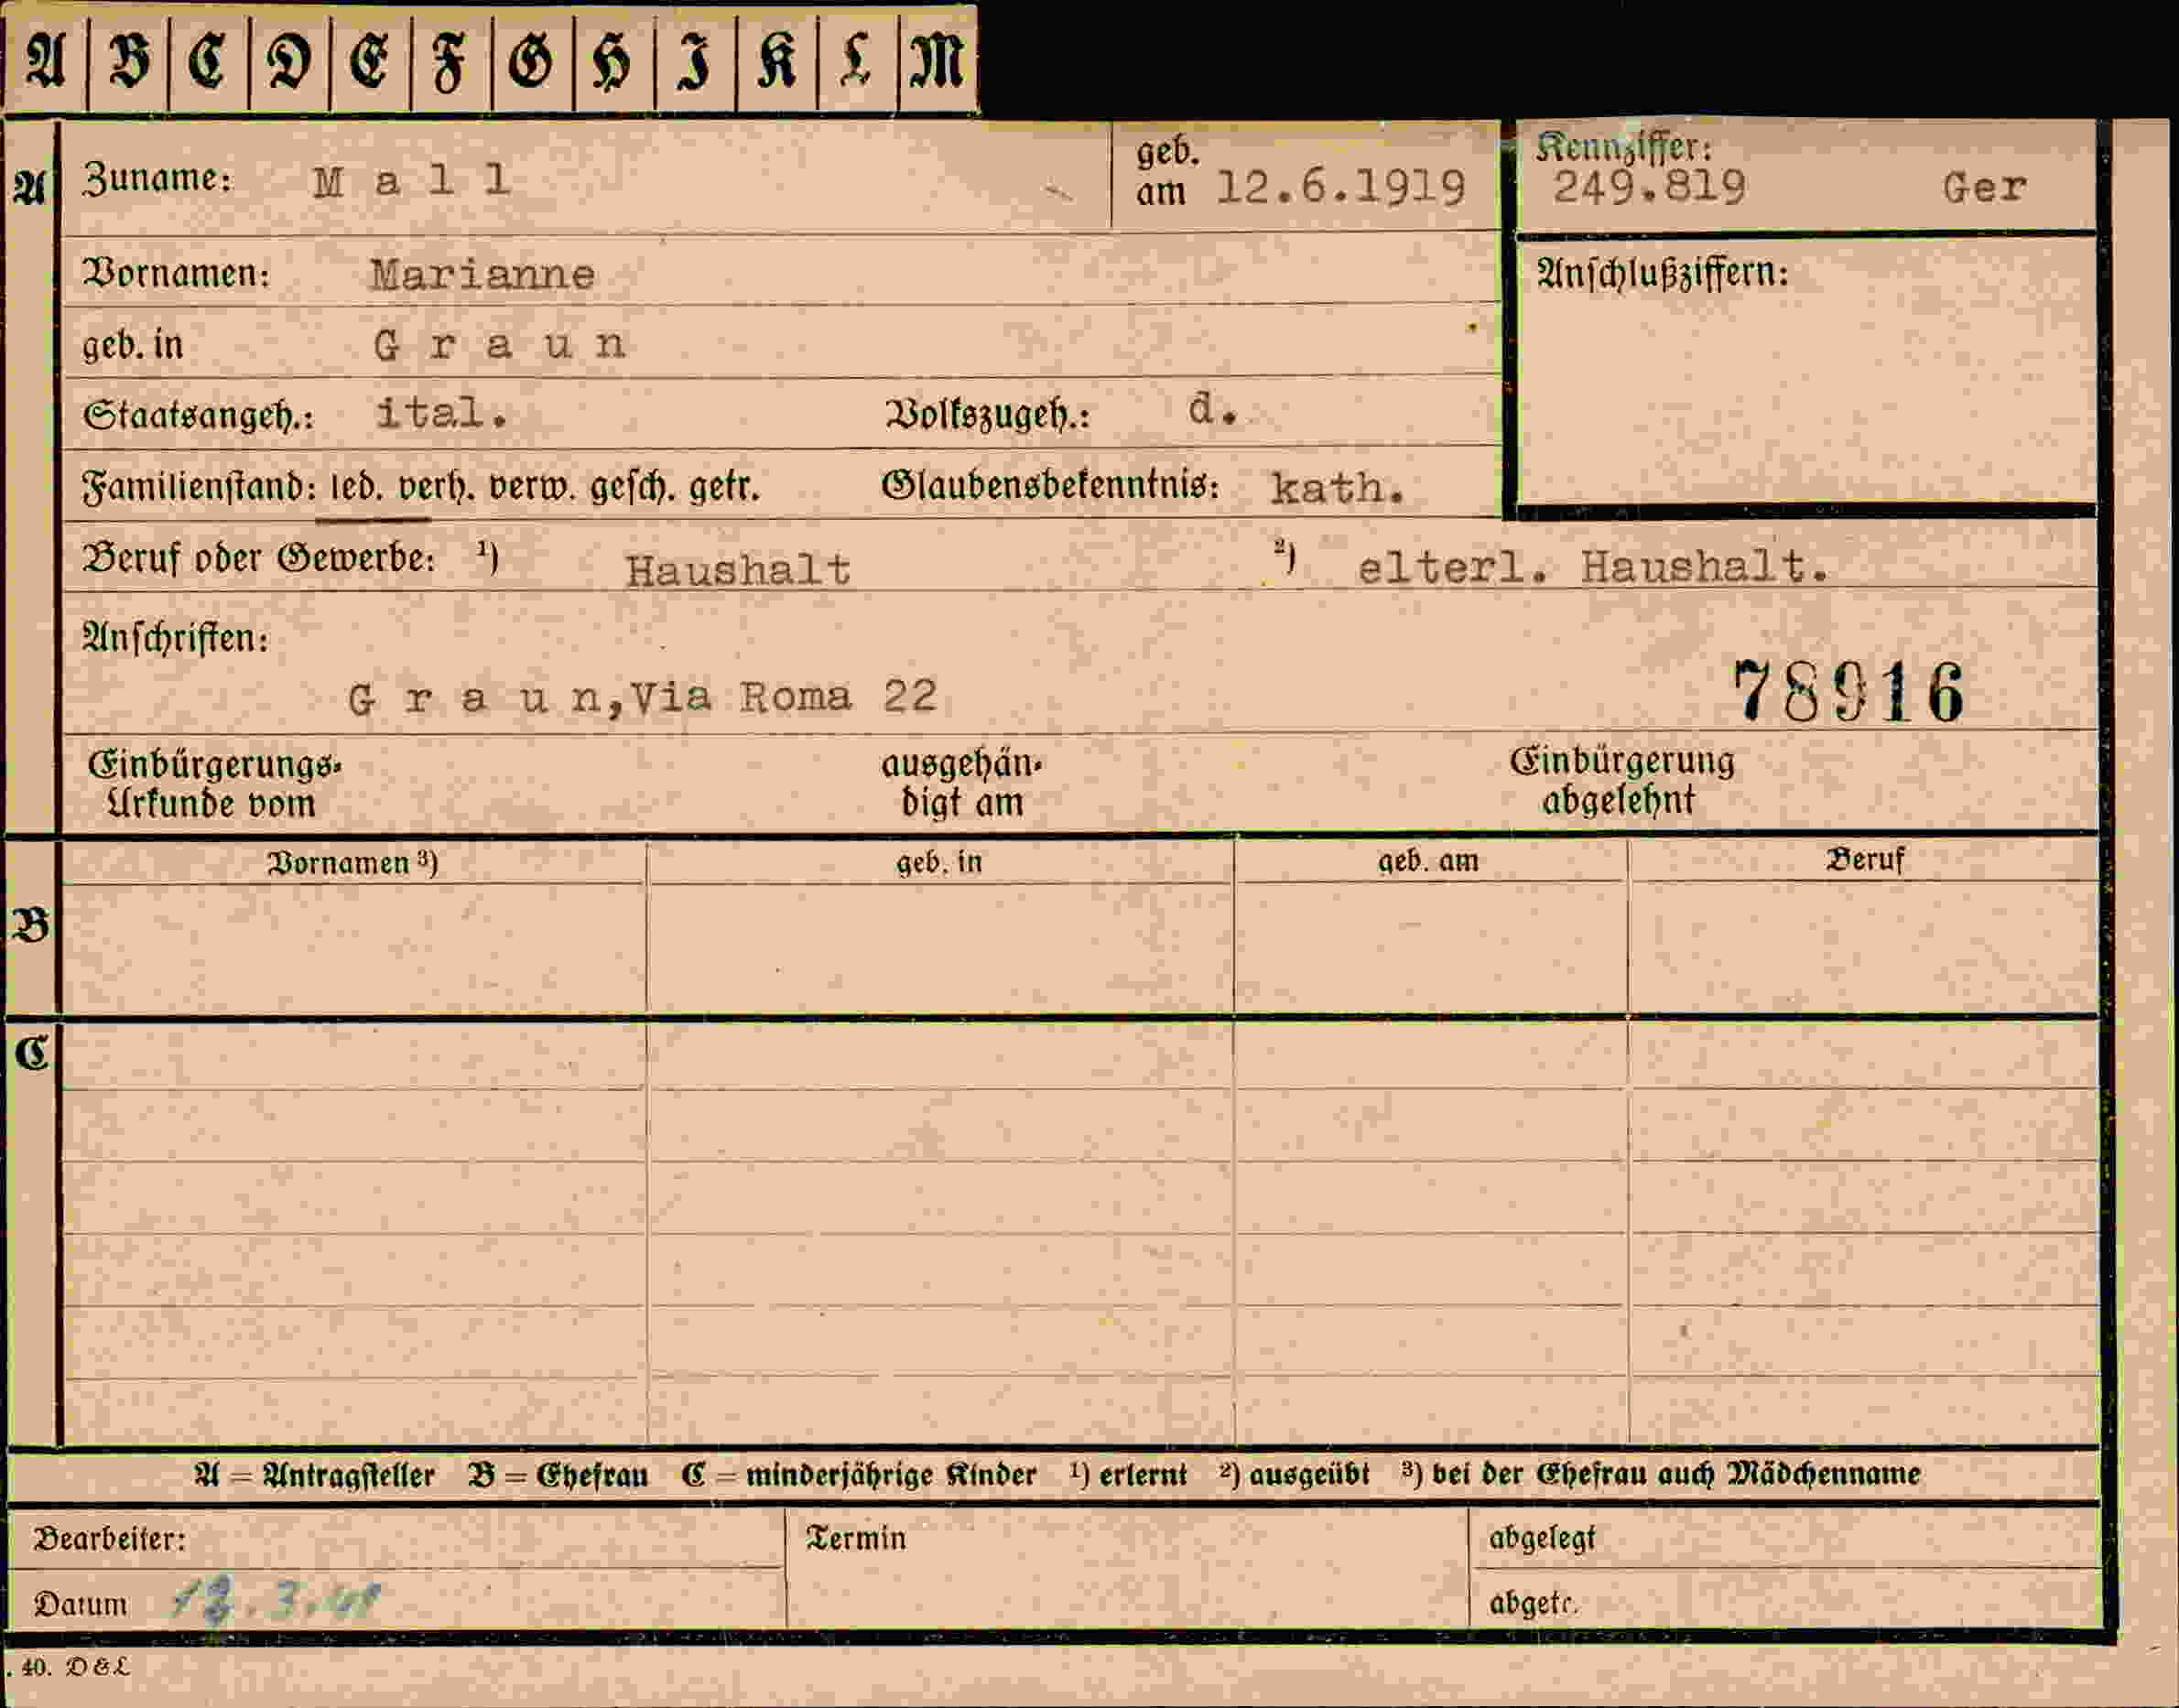 A B C D E F G H I K L M
A Zuname: Mall geb. am 12.6.1919 Kennziffer: 249.819 Ger
Vornamen: Marianne Anschlußziffern:
geb. in Graun
Staatsangeh.: ital. Volkszugeh.: d.
Familienstand: led. verh. verw. gesch. getr. Glaubensbekenntnis: kath.
Beruf oder Gewerbe: 1) Haushalt 2) elterl. Haushalt.
Anschriften:
Graun, Via Roma 22 78916
Einbürgerungs- ausgehän- Einbürgerung
Urkunde vom digt am abgelehnt
Vornamen 3) geb. in geb. am Beruf
B
C
A = Antragsteller B = Ehefrau C = minderjährige Kinder 1) erlernt 2) ausgeübt 3) bei der Ehefrau auch Mädchenname
Bearbeiter: Termin abgelegt
Datum abgetr.
. 40. D & L